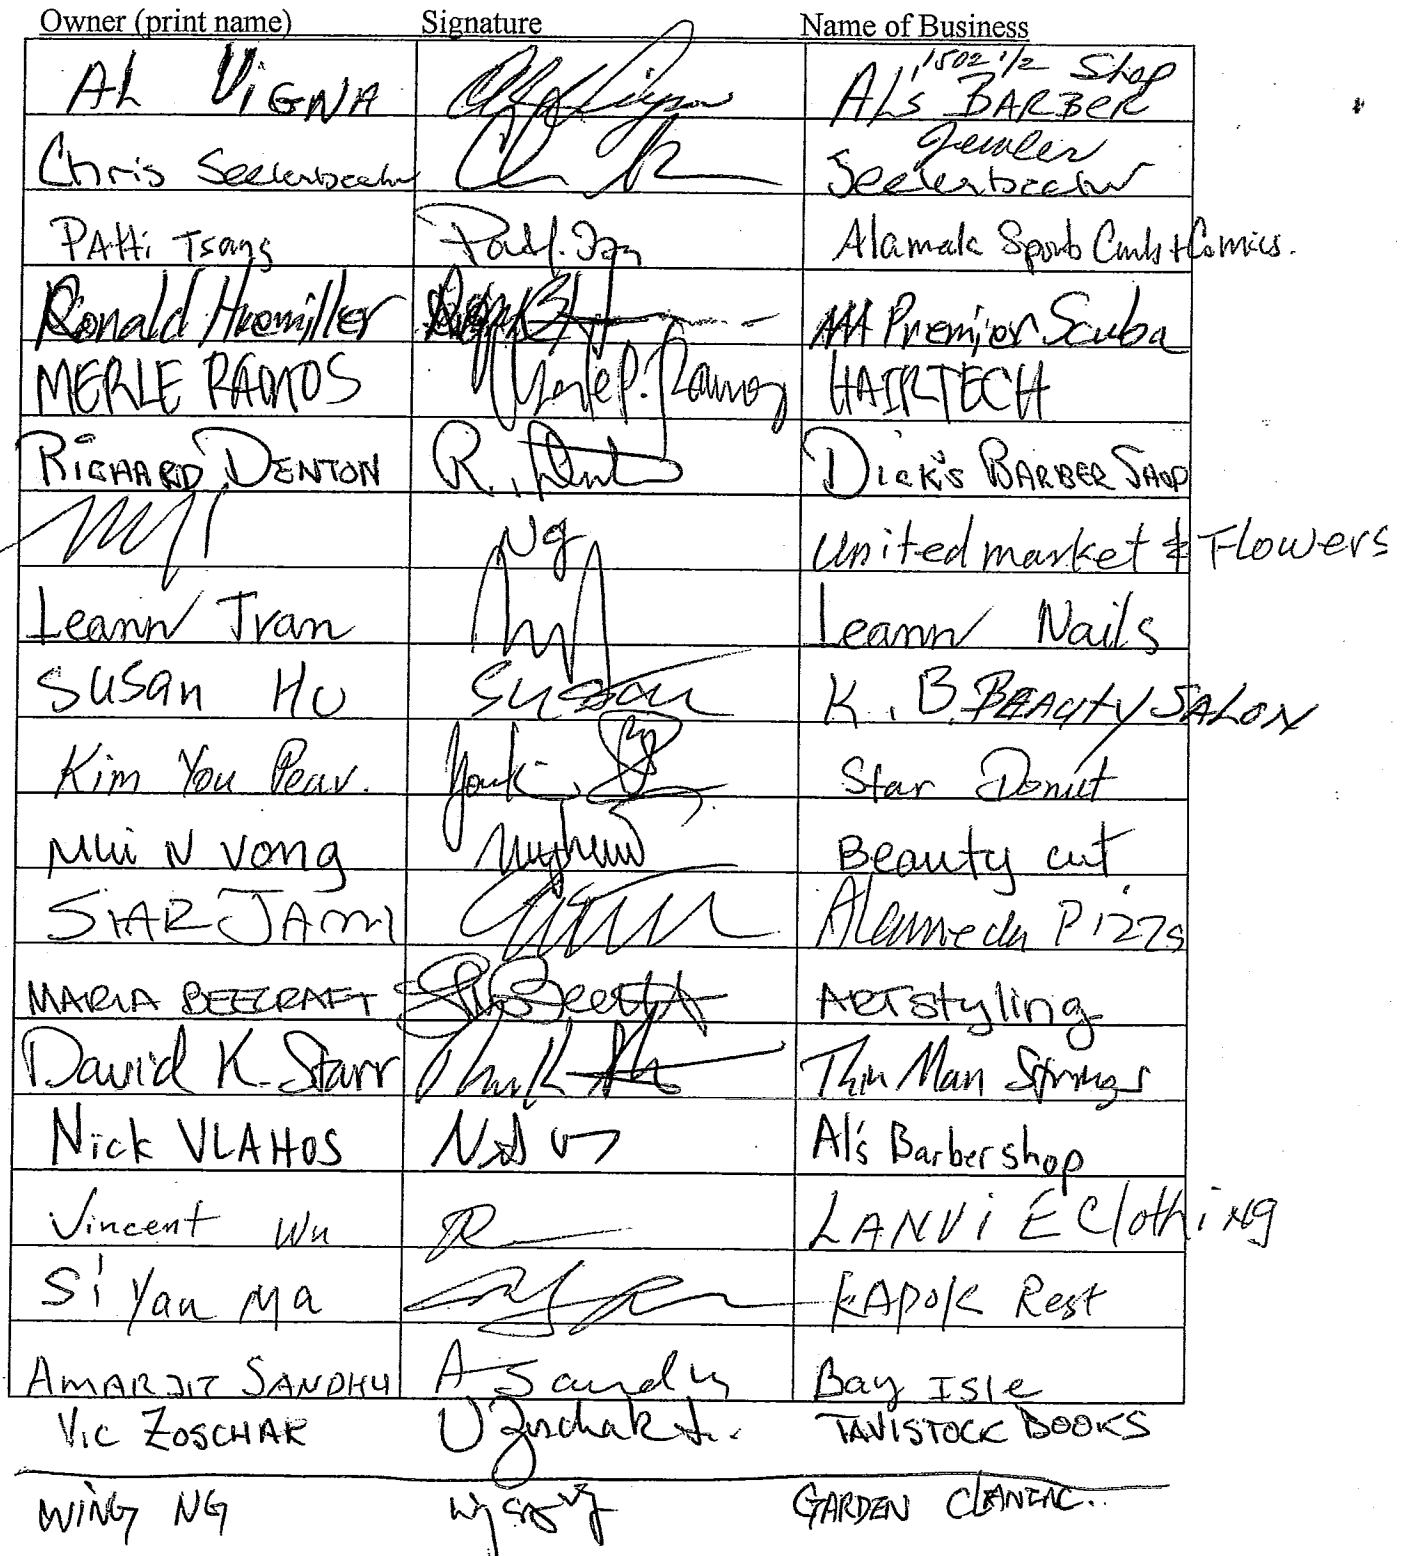 Owner (print name) Signature Name of Business
AL VIGNA 1502 1/2 Shop
AL'S BARBER
Chris Seelenbacher Jeweler
Seelenbacher
PAtti Tsang Alamak Sports Cards + Comics.
Ronald Huemiller AAA Premier Scuba
MERLE RAMOS Merle P. Ramos HAIRTECH
RICHARD DENTON R. Denton DICK'S BARBER SHOP
Ng United market & Flowers
Leann Tran Leann Nails
SUSan HU Susan K. B. BEAUTY SALON
Kim You Peav. Star Donut
MUi N vong Beauty cut
SIAR JAMI Alameda Pizza
MARIA BEECRAFT ARTstyling
David K. Starr Thin Man Strings
Nick VLAHOS Al's Barbershop
Vincent Wu LANVi E Clothing
Si Yau Ma KAPOK Rest
AMARJIT SANDHU A Sandhu Bay ISle
VIC ZOSCHAK V Zoschak Jr. TAVISTOCK BOOKS
WING NG GARDEN